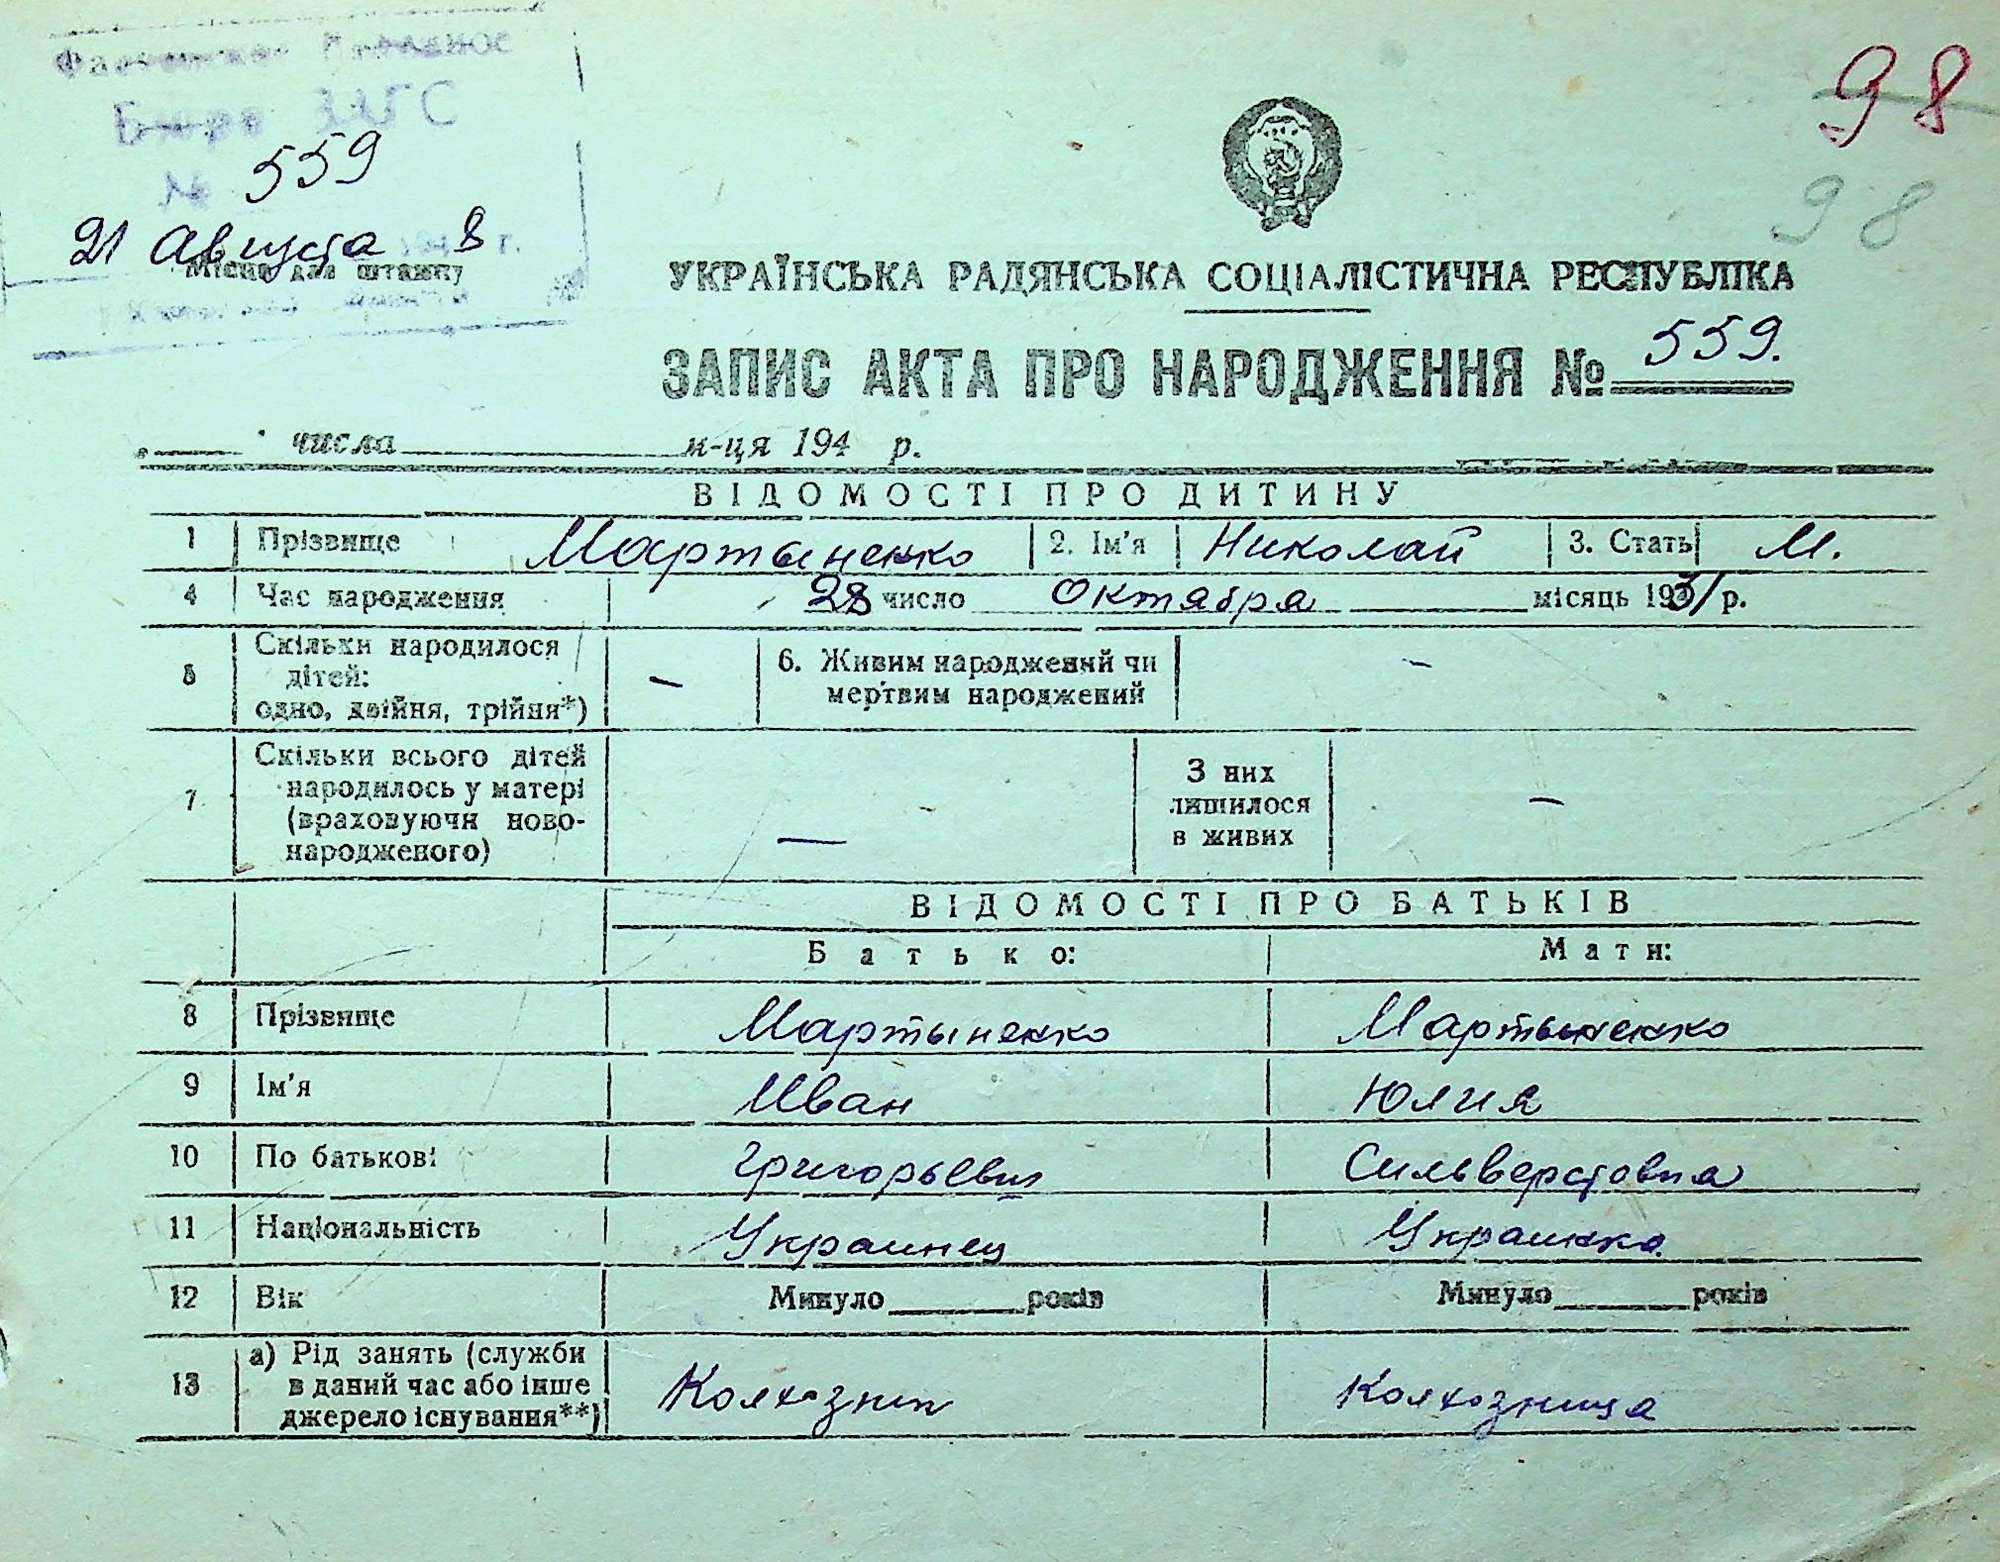 98
Бюро ЗАГС
№ 559
98
21 Августа 194 8 г.
Місце для штампу
УКРАЇНСЬКА РАДЯНСЬКА СОЦІАЛІСТИЧНА РЕСПУБЛІКА
ЗАПИС АКТА ПРО НАРОДЖЕННЯ № 559.
числа м-ця 194 р.
ВІДОМОСТІ ПРО ДИТИНУ
1 Прізвище Мартыненко 2. Ім'я Николай 3. Стать М.
4 Час народження 28 число Октября місяць 1931 р.
5 Скільки народилося
дітей:
одно, двійня, трійня*) — 6. Живим народжений чи
мертвим народжений —
7 Скільки всього дітей
народилось у матері
(враховуючи ново-
народженого) — З них
лишилося
в живих —
ВІДОМОСТІ ПРО БАТЬКІВ
Батько: Мати:
8 Прізвище Мартыненко Мартыненко
9 Ім'я Иван Юлия
10 По батькові Григорьевич Сильверстовна
11 Національність Украинец Украинка
12 Вік Минуло років Минуло років
13 а) Рід занять (служби
в даний час або інше
джерело існування**) Колхозник Колхозница